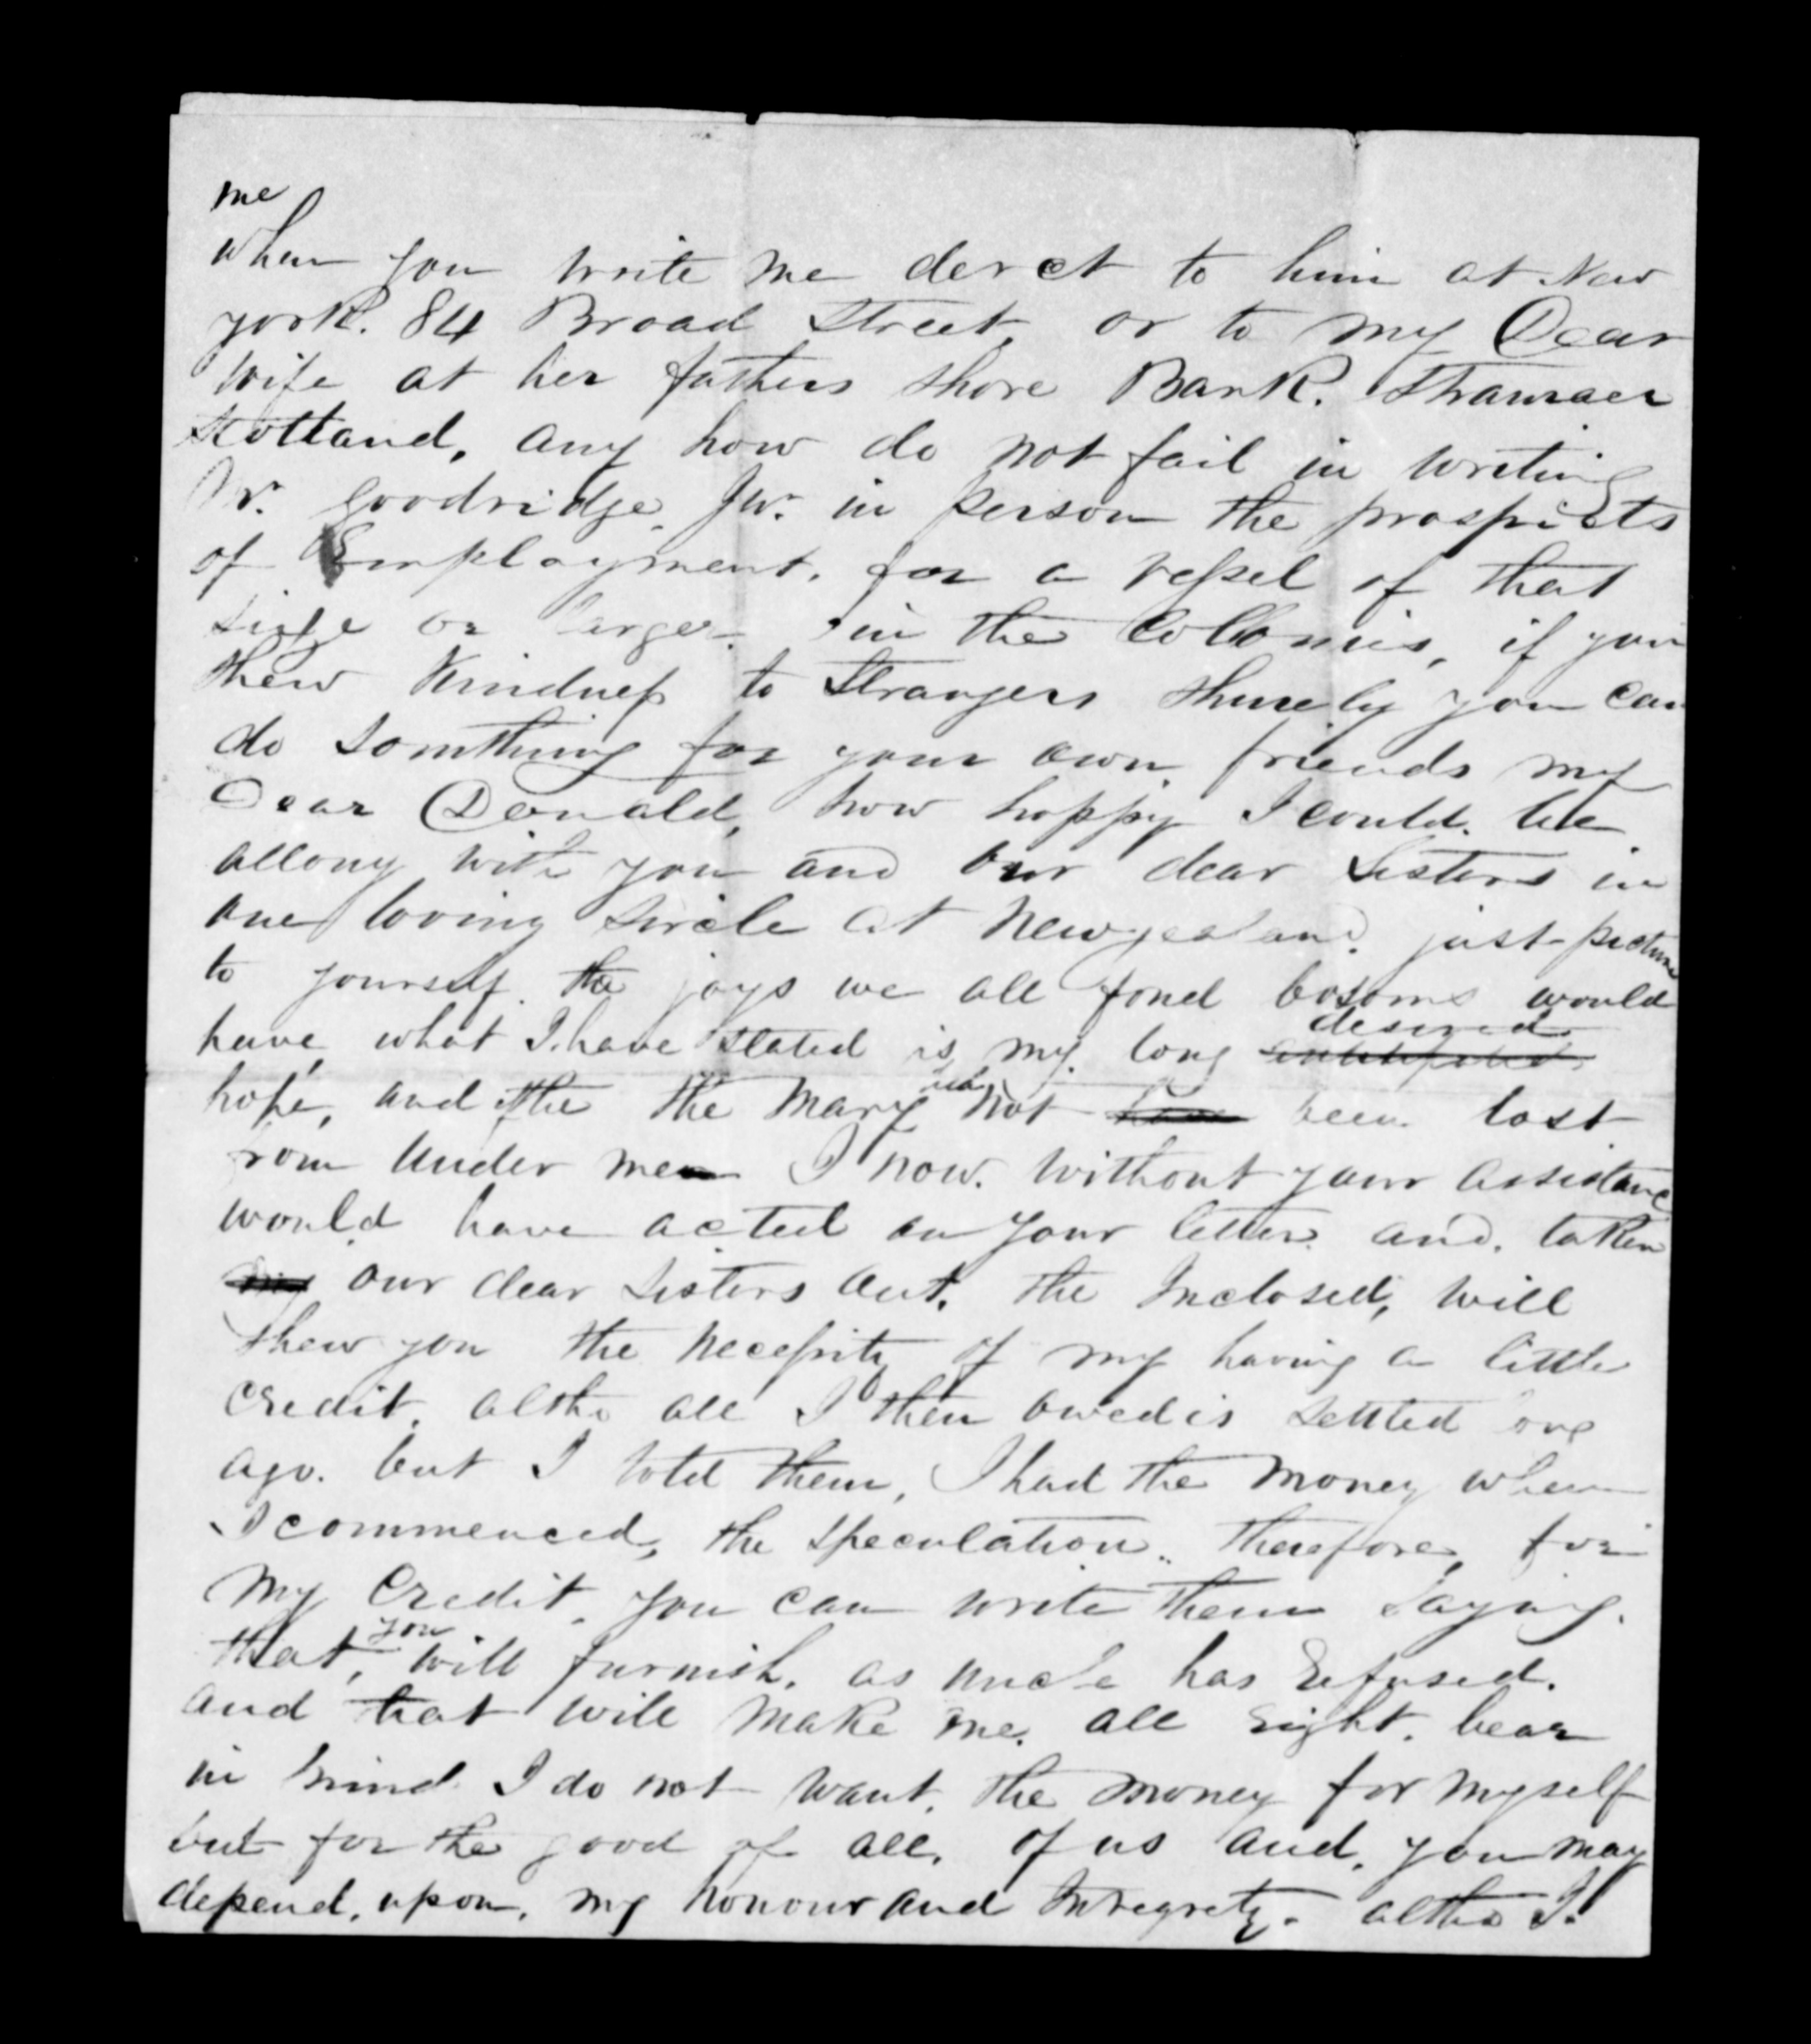 me
when you write me derect to him at New
york. 84 Broad Street, or to my Dear
wife at her fathers Shore Bank. Stranraer
Scotland, any how do not fail in writing
Mr. Goodridge Jnr. in person the prospects
of Employment. for a vessel of that
sizge or larger. in the Collonies, if you
shew Kindness to Strangers shurely you can
do Somthing for your own friends my
Dear Donald, how happy I could. be
allong with you and our dear Sisters in
one loving Sircle at Newzealand. just picture
to yourself. the joys we all fond bosoms would
have, what I have stated is my. long desired
hope, and the the Mary not have been lost
from under me I now. without your assistance
would have acted on your letter. and. taken
my our dear Sisters out. the Inclosed, will
shew you the necessity of my having a little
credit. altho all I then owed is settled long
ago. but I told them, I had the money when
I commenced, the Speculation.. therefore, for
my Credit. you can write them Saying.
that, you will furnish. as uncle has refused.
and that will make me. all right. bear
in mind I do not want. the money for myself
but for the good of all. of us and. you may
depend. upon. my honour and Integrety. altho I.